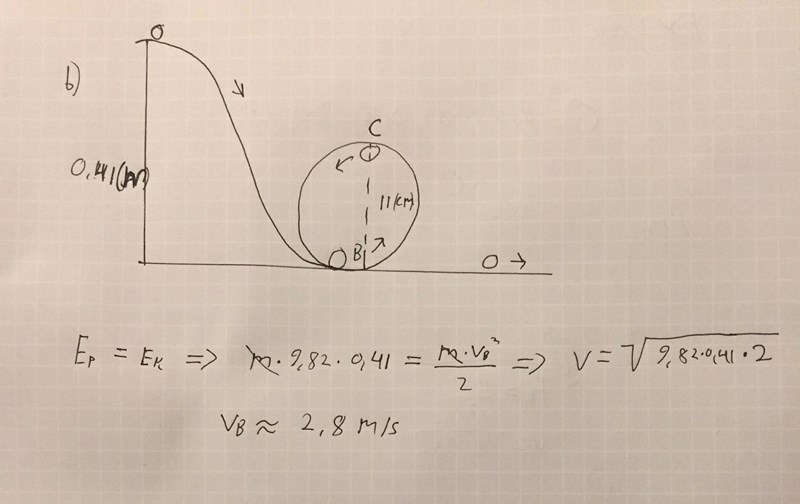 b)
0,41(m)
C
11(cm)
B
E_P = E_K => m · 9,82 · 0,41 = m·V_B² / 2 => V = √9,82·0,41·2
V_B ≈ 2,8 m/s